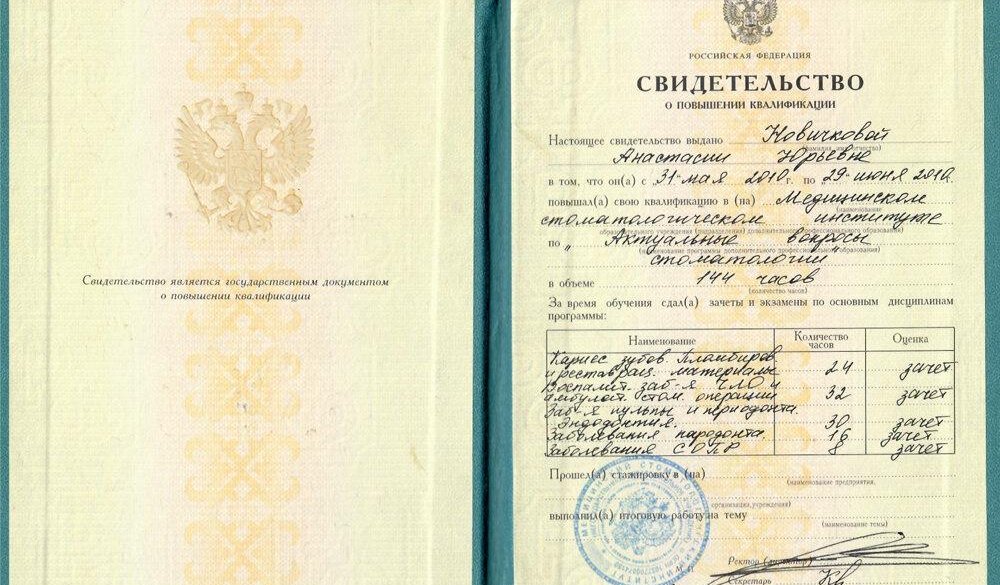 Свидетельство является государственным документом
о повышении квалификации
РОССИЙСКАЯ ФЕДЕРАЦИЯ
СВИДЕТЕЛЬСТВО
О ПОВЫШЕНИИ КВАЛИФИКАЦИИ
Настоящее свидетельство выдано Новичковой
Анастасии Юрьевне
в том, что он(а) с 31 мая 2010 г. по 29 июня 2010г.
повышал(а) свою квалификацию в (на) Медицинском
(наименование
стоматологическом институте
образовательного учреждения (подразделения) дополнительного профессионального образования)
по „ Актуальные вопросы
(наименование программы дополнительного профессионального образования)
стоматологии"
в объеме 144 часов
(количество часов)
За время обучения сдал(а) зачеты и экзамены по основным дисциплинам
программы:
Наименование Количество часов Оценка
Кариес зубов. Пломбиров.
и реставрац. материалы 24 зачет
Воспалит. заб-я ЧЛО и
амбулат. стом. операции 32 зачет
Заб-я пульпы и периодонта.
Эндодонтия. 30 зачет
Заболевания пародонта. 16 зачет
Заболевания СОПР 8 зачет
Прошел(а) стажировку в (на)
(наименование предприятия,
организации, учреждения)
выполнил(а) итоговую работу на тему
(наименование темы)
Ректор (директор)
Секретарь